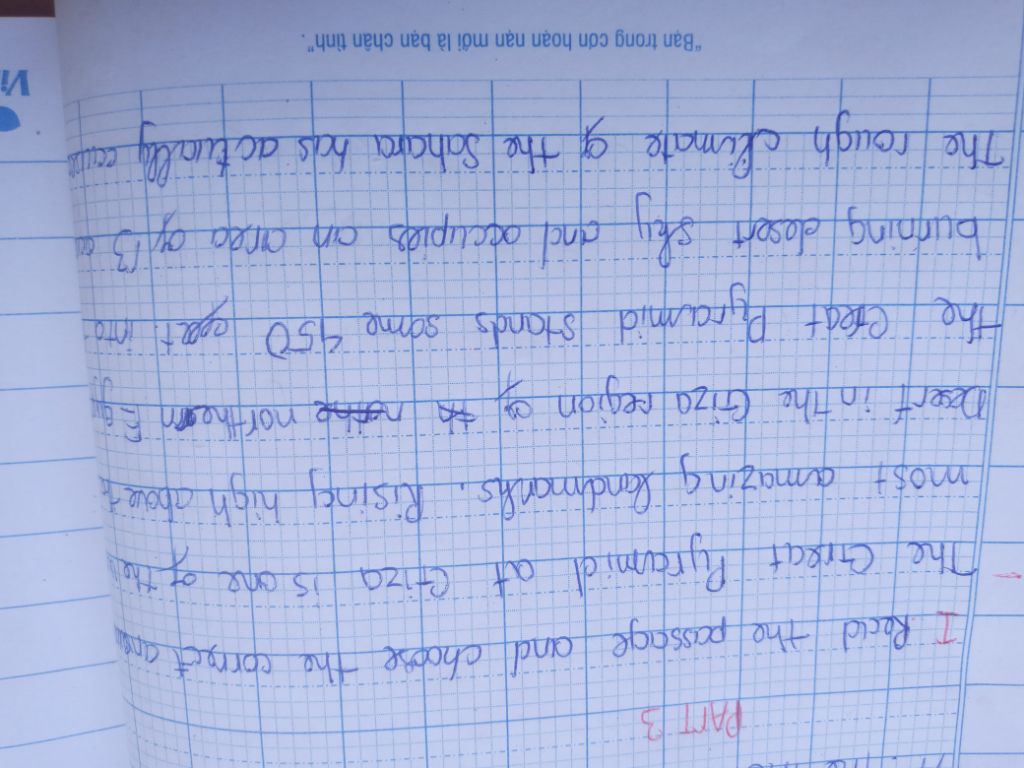 PART 3
I Read the passage and choose the correct
The Great Pyramid at Giza is one of the
most amazing landmarks. Rising high above
Desert in the Giza region of northern
the Great Pyramid stands some 450 into
burning desert sky and occupies an area of 13
The rough climate of the Sahara has actually
"Bạn trong cơn hoạn nạn mới là bạn chân tình".